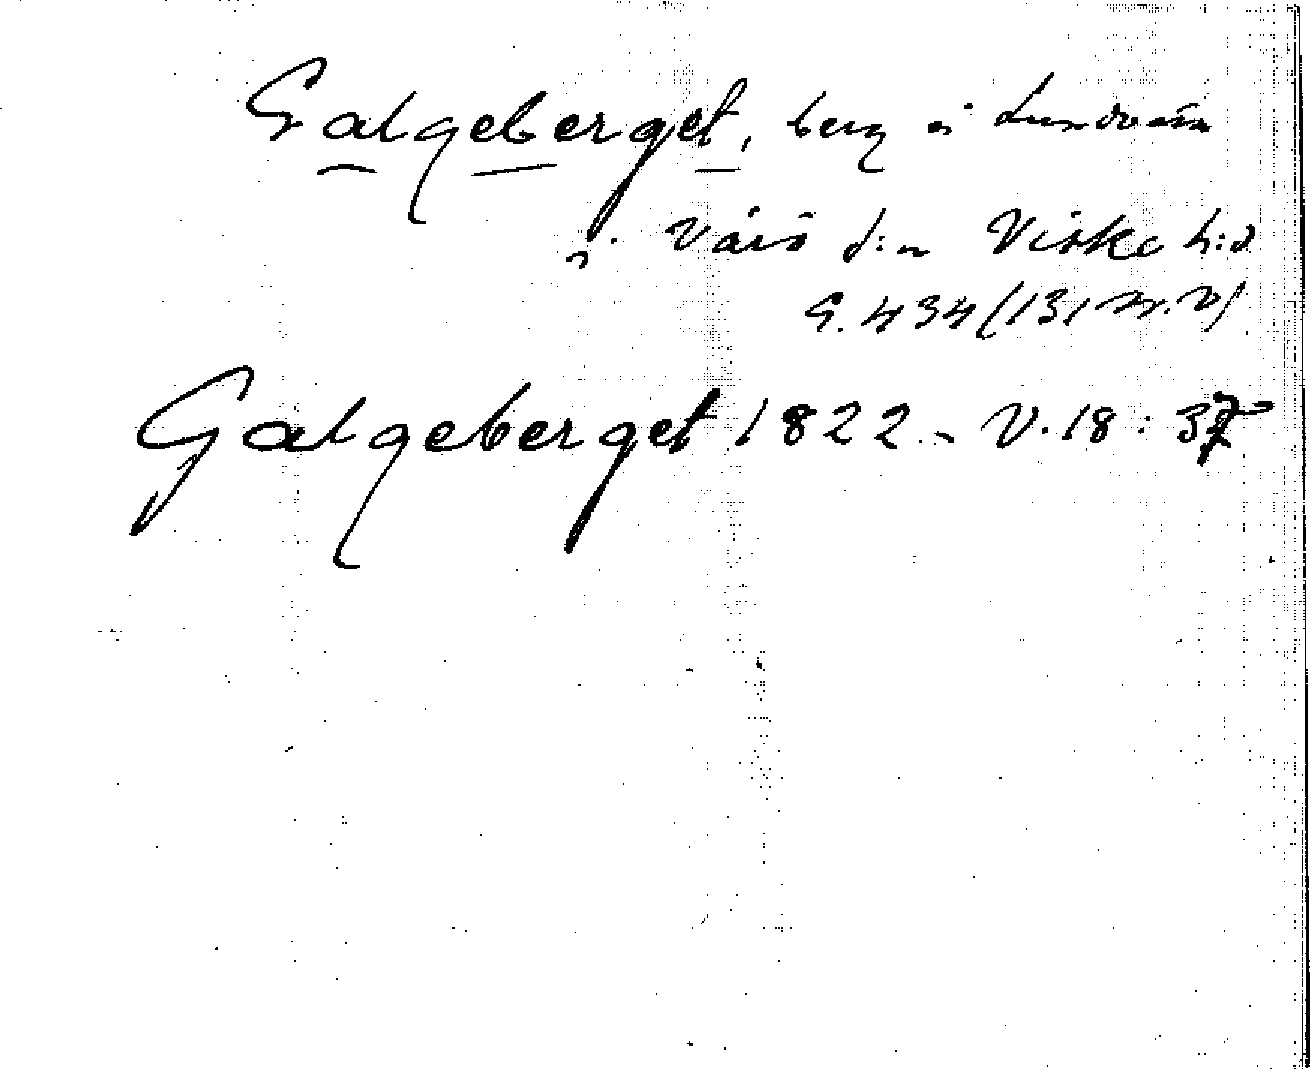 Galgeberget, berg i Lundvåra
i Värö s:n Viske h:d
G. 434 (131 m. v)
Galgeberget 1822. V. 18 : 37